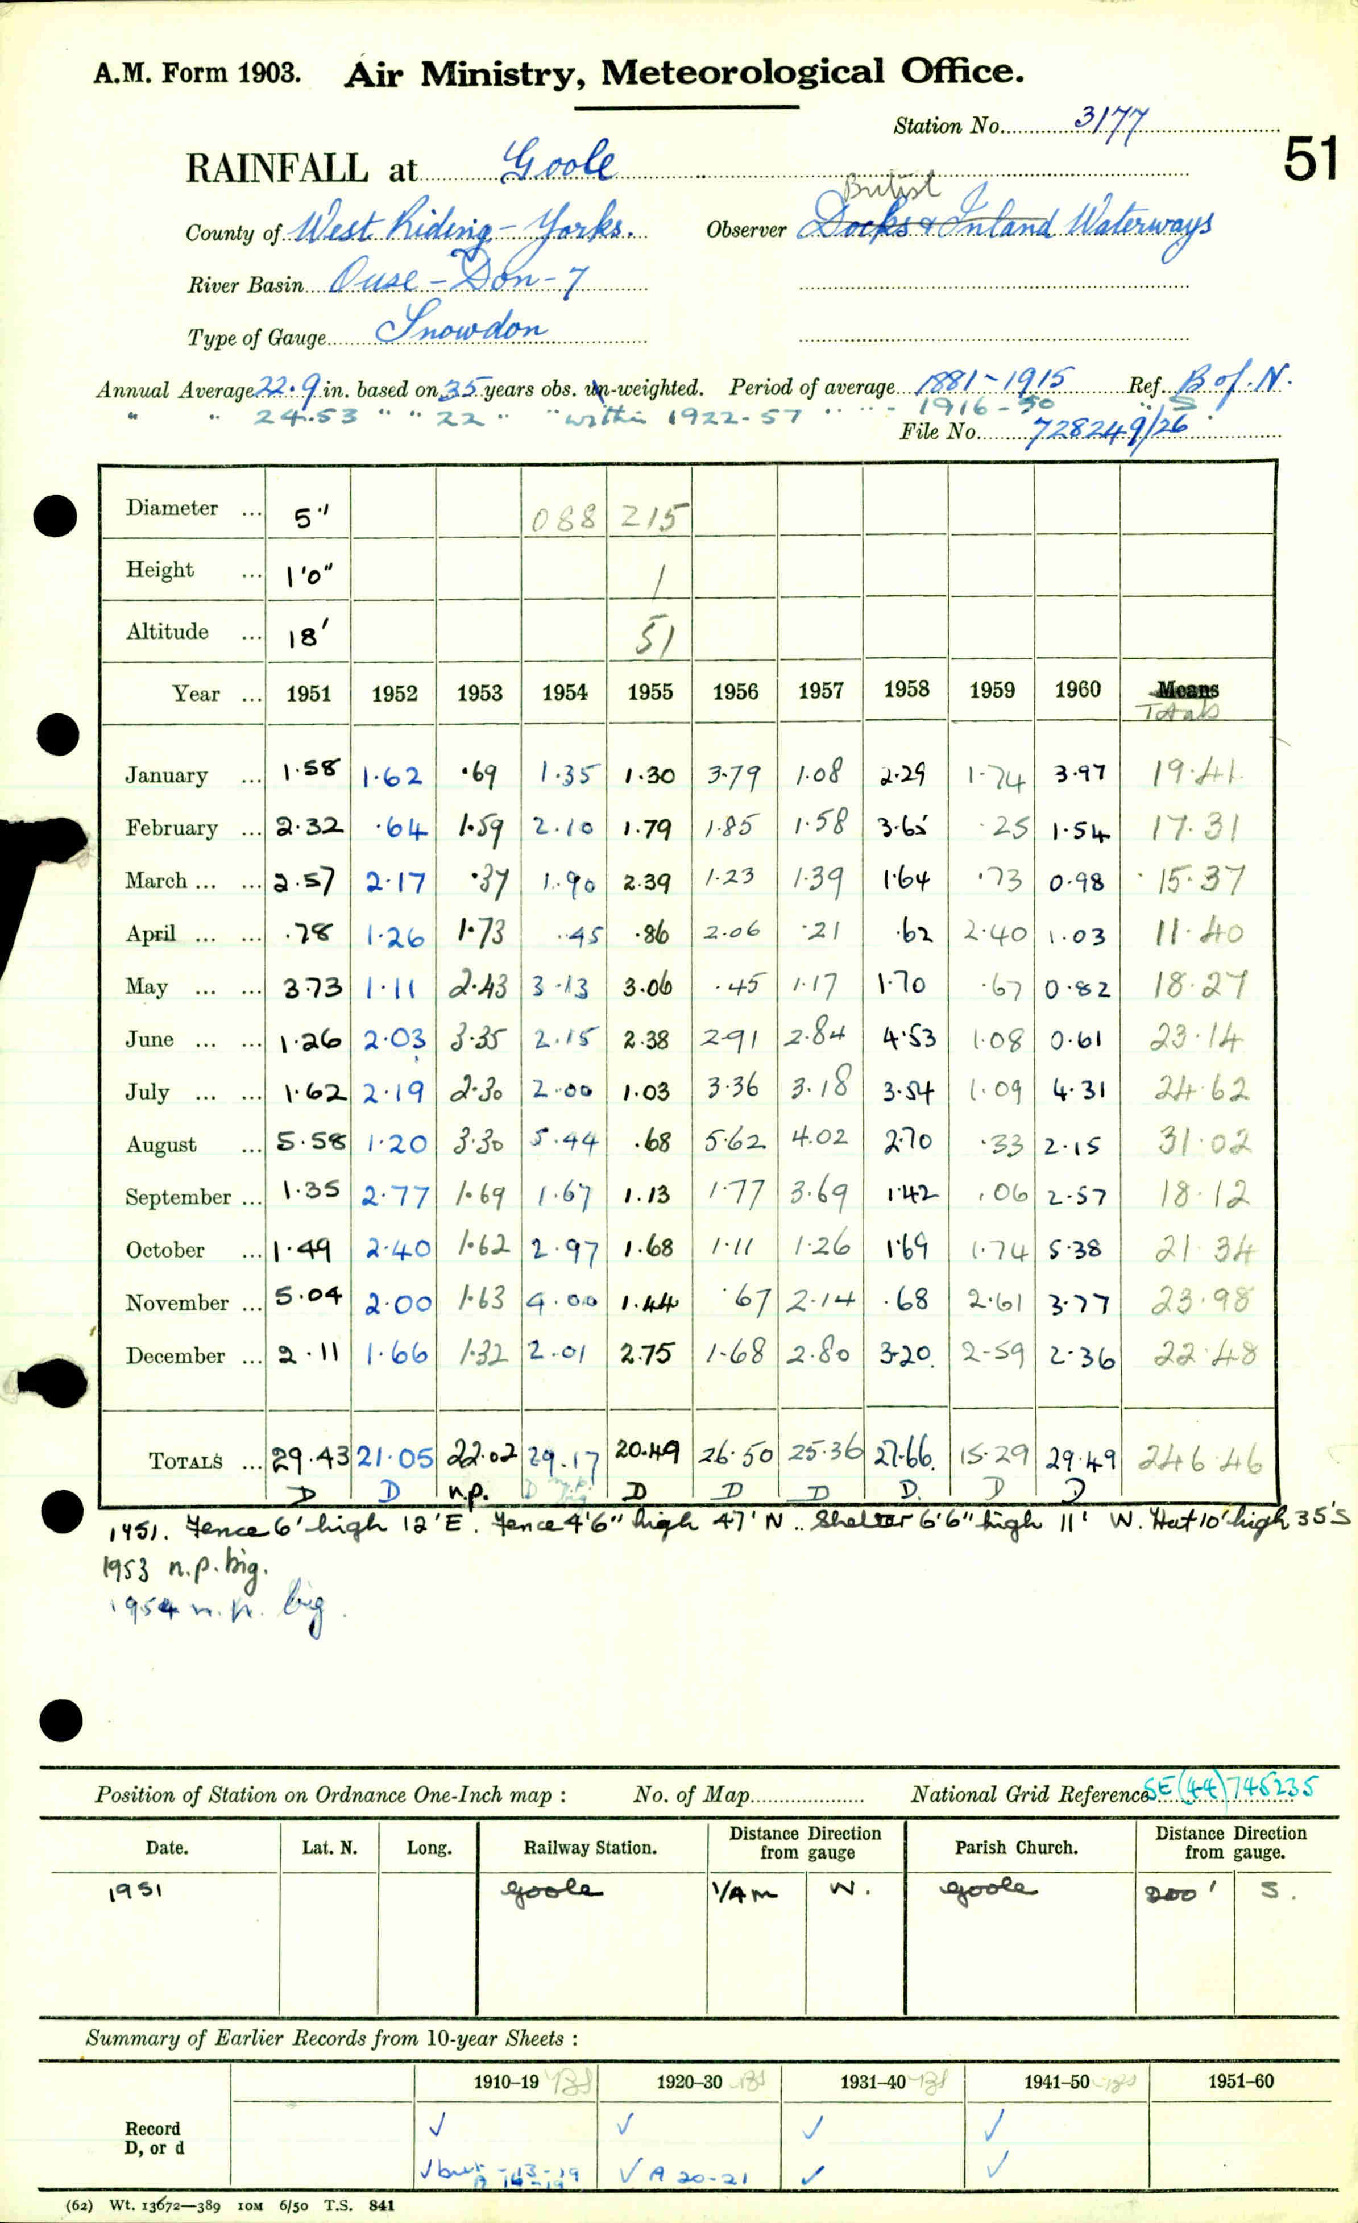 A.M. Form 1903. Air Ministry, Meteorological Office.
Station No. 3177
51
RAINFALL at Goole
British
County of West Riding - Yorks. Observer Docks & Inland Waterways
River Basin Ouse - Don - 7
Type of Gauge Snowdon
Annual Average 22.9 in. based on 35 years obs. un-weighted. Period of average 1881-1915 Ref. B of N.
" " 24.53 " " 22 " " within 1922-57 " " - 1916-50 " S
File No. 728249/26
Diameter ... 5" 088 215
Height ... 1'0" 1
Altitude ... 18' 51
Year ... 1951 1952 1953 1954 1955 1956 1957 1958 1959 1960 Means
Totals
January ... 1.58 1.62 .69 1.35 1.30 3.79 1.08 2.29 1.74 3.97 19.41
February ... 2.32 .64 1.59 2.10 1.79 1.85 1.58 3.65 .25 1.54 17.31
March ... ... 2.57 2.17 .37 1.90 2.39 1.23 1.39 1.64 .73 0.98 15.37
April ... ... .78 1.26 1.73 .45 .86 2.06 .21 .62 2.40 1.03 11.40
May ... ... 3.73 1.11 2.43 3.13 3.06 .45 1.17 1.70 .67 0.82 18.27
June ... ... 1.26 2.03 3.35 2.15 2.38 2.91 2.84 4.53 1.08 0.61 23.14
July ... ... 1.62 2.19 2.30 2.00 1.03 3.36 3.18 3.54 1.09 4.31 24.62
August ... 5.58 1.20 3.30 5.44 .68 5.62 4.02 2.70 .33 2.15 31.02
September ... 1.35 2.77 1.69 1.67 1.13 1.77 3.69 1.42 .06 2.57 18.12
October ... 1.49 2.40 1.62 2.97 1.68 1.11 1.26 1.69 1.74 5.38 21.34
November ... 5.04 2.00 1.63 4.00 1.44 .67 2.14 .68 2.61 3.77 23.98
December ... 2.11 1.66 1.32 2.01 2.75 1.68 2.80 3.20. 2.59 2.36 22.48
TOTALS ... 29.43 21.05 22.02 29.17 20.49 26.50 25.36 27.66. 15.29 29.49 246.46
D D n.p. D D D D D. D D
1951. Fence 6' high 12' E. Fence 4'6" high 47' N.. Shelter 6'6" high 11' W. Hut 10' high 35' S
1953 n.p. big.
1954 n.p. big.
Position of Station on Ordnance One-Inch map : No. of Map National Grid Reference SE(44)746235
Date. Lat. N. Long. Railway Station. Distance from Direction gauge Parish Church. Distance from Direction gauge.
1951 Goole 1/4 m W. Goole 200' S.
Summary of Earlier Records from 10-year Sheets :
1910–19 1920–30 1931–40 1941–50 1951–60
Record ✓ ✓ ✓ ✓
D, or d ✓ but ✓ A 20-21 ✓ ✓
(62) Wt. 13672—389 10M 6/50 T.S. 841